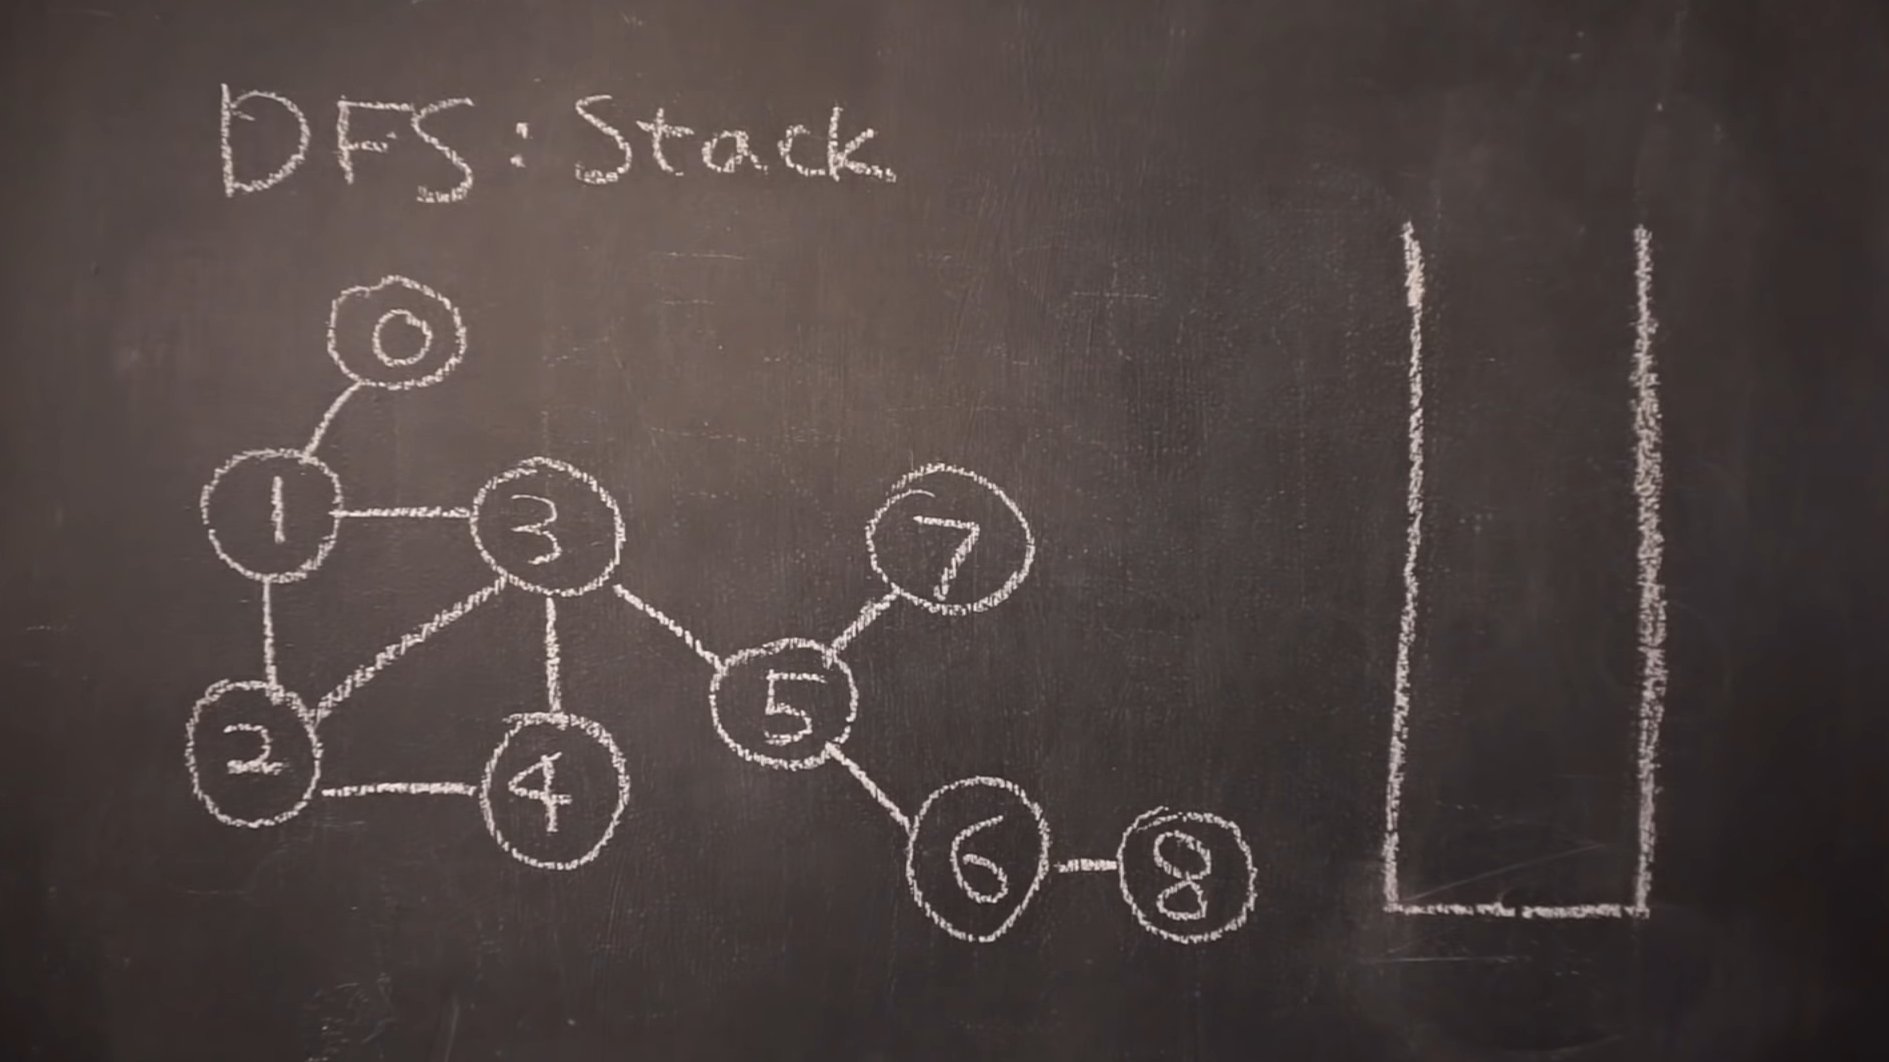 DFS: Stack
0
1
3
7
5
2
4
6
8